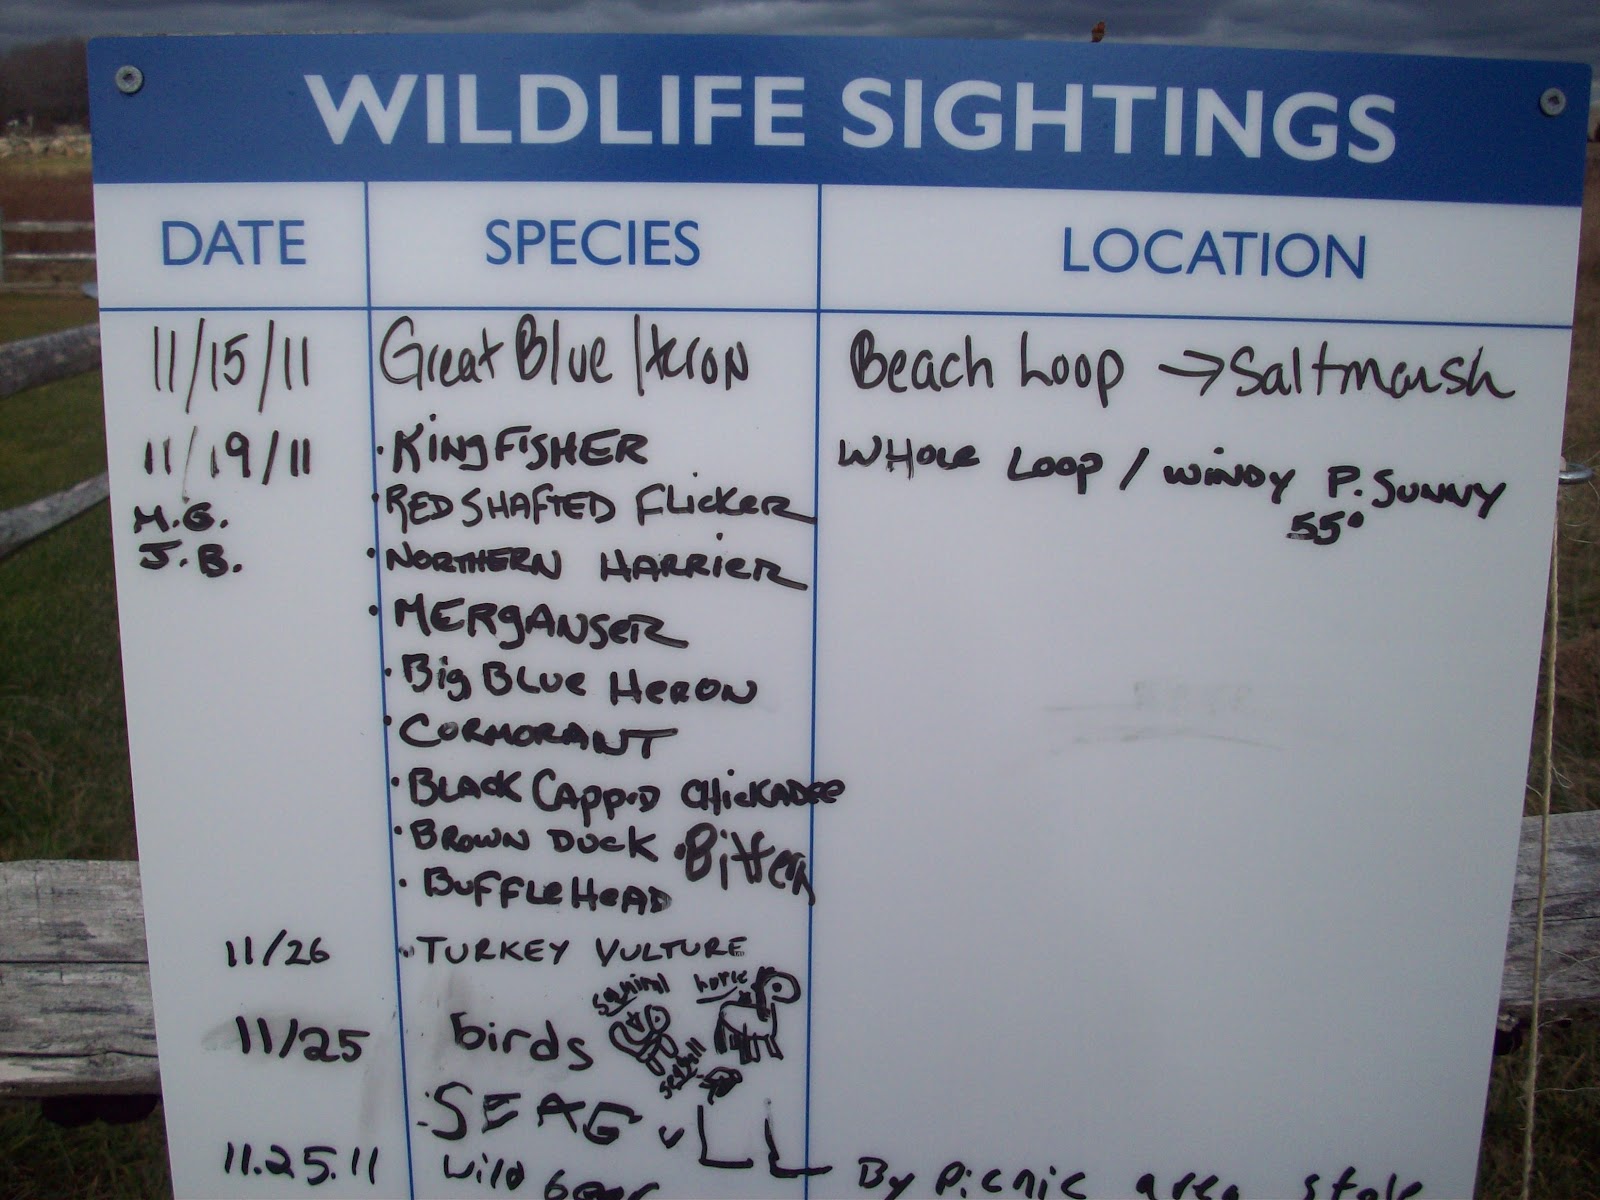 WILDLIFE SIGHTINGS
DATE SPECIES LOCATION
11/15/11 Great Blue Heron Beach Loop → Saltmarsh
11/19/11 · KINGFISHER WHOLE LOOP / WINDY P. SUNNY
M.G. · RED SHAFTED FLICKER 55°
J.B. · NORTHERN HARRIER
· MERGANSER
· Big BLUE HERON
· CORMORANT
· BLACK CAPPED CHICKADEE
· BROWN DUCK · Bittern
· BUFFLEHEAD
11/26 · TURKEY VULTURE
squirrel horse
11/25 birds
SEAGULL
11.25.11 wild bear By Picnic area stole